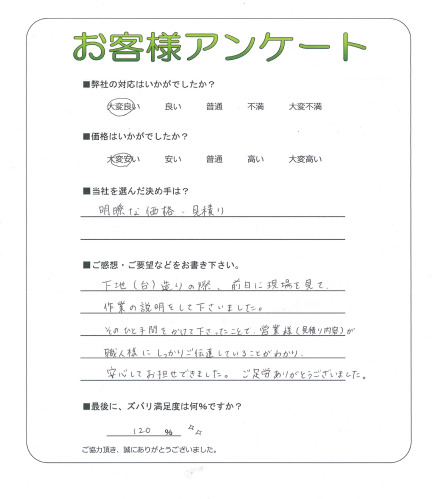 お客様アンケート
■弊社の対応はいかがでしたか？
大変良い 良い 普通 不満 大変不満
■価格はいかがでしたか？
大変安い 安い 普通 高い 大変高い
■当社を選んだ決め手は？
明瞭な価格・見積り
■ご感想・ご要望などをお書き下さい。
下地(台)造りの際、前日に現場を見て、
作業の説明をして下さいました。
そのひと手間をかけて下さったことで、営業様(見積り内容)が
職人様にしっかりご伝達していることがわかり、
安心してお任せできました。ご足労ありがとうございました。
■最後に、ズバリ満足度は何％ですか？
120 ％
ご協力頂き、誠にありがとうございました。